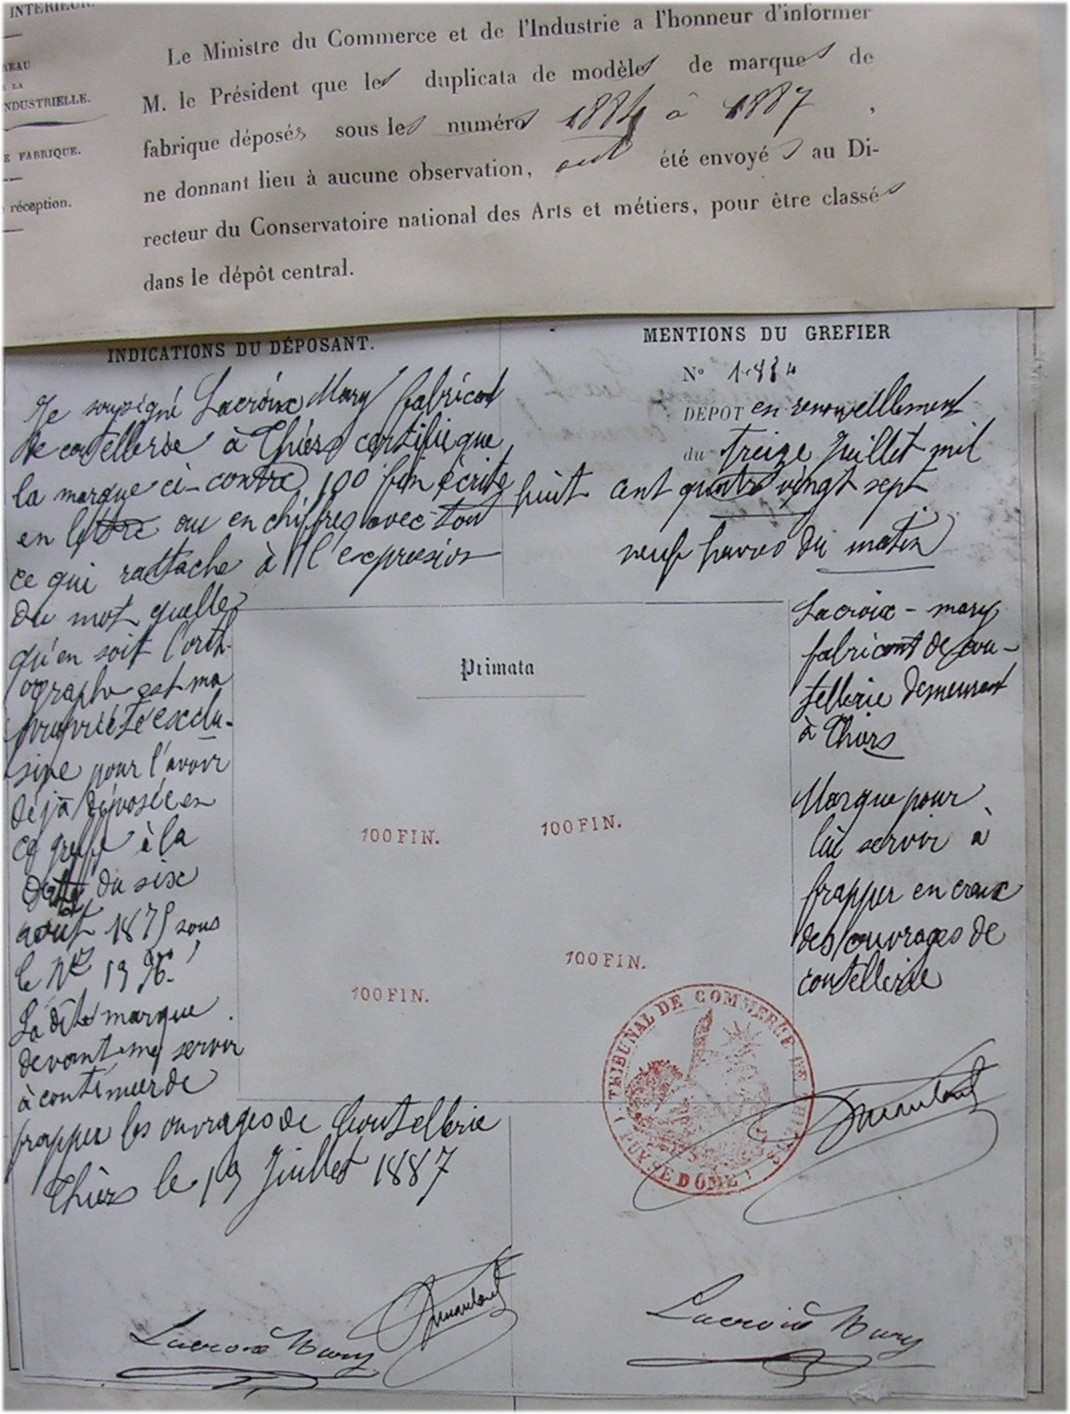 INTÉRIEUR.
INDUSTRIELLE.
FABRIQUE.
réception.
Le Ministre du Commerce et de l'Industrie a l'honneur d'informer
M. le Président que les duplicata de modèles de marques de
fabrique déposés sous les numéros 1884 à 1887,
ne donnant lieu à aucune observation, ont été envoyés au Di-
recteur du Conservatoire national des Arts et métiers, pour être classés
dans le dépôt central.
INDICATIONS DU DÉPOSANT.
Je soussigné Lacroix Mary fabricant
de coutellerie à Thiers certifie que
la marque ci-contre 100 fin écrite
en lettre ou en chiffres avec tout
ce qui rattache à l'expression
du mot quelle
qu'en soit l'orth-
ographe est ma
propriété exclu-
sive pour l'avoir
déjà déposée en
ce greffe à la
date du six
août 1875 sous
le No
La dite marque
devant me servir
à continuer de
frapper les ouvrages de Coutellerie
Thiers le Juillet 1887
Lacroix Mary
MENTIONS DU GREFIER
No 1884
DÉPOT en renouvellement
du treize Juillet mil
huit cent quatre vingt sept
neuf heures du matin
Primata
100 FIN. 100 FIN.
100 FIN. 100 FIN.
Lacroix - mary
fabricant de cou-
tellerie demeurant
à Thiers
Marque pour
lui servir à
frapper en creux
des ouvrages de
coutellerie
TRIBUNAL DE COMMERCE DE THIERS
PUY DE DOME
Lacroix Mary